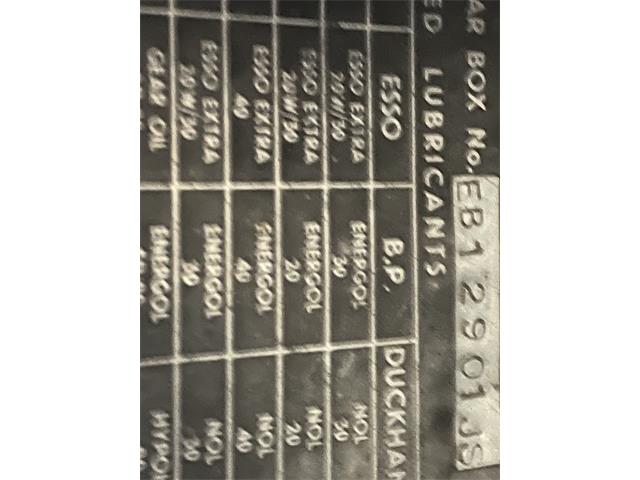 AR BOX No. EB12901JS
ED LUBRICANTS
ESSO B.P. DUCKHA
ESSO EXTRA ENERGOL NOL
20W/30 30 30
ESSO EXTRA ENERGOL NOL
20W/30 20 20
ESSO EXTRA ENERGOL NOL
40 40 40
ESSO EXTRA ENERGOL NOL
20W/30 30 30
GEAR OIL ENERGOL HYPO